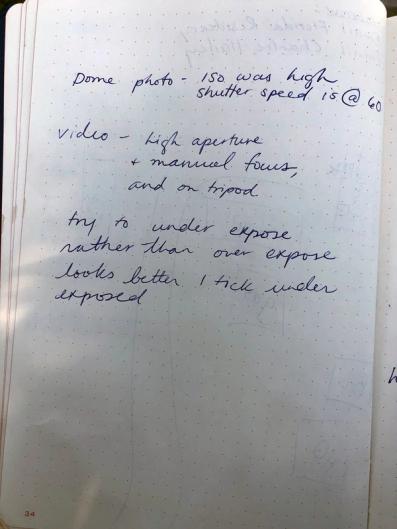 Dome photo - ISO was high
shutter speed is @ 60
video - high aperture
+ manual focus,
and on tripod
try to under expose
rather than over expose
looks better 1 tick under
exposed
34